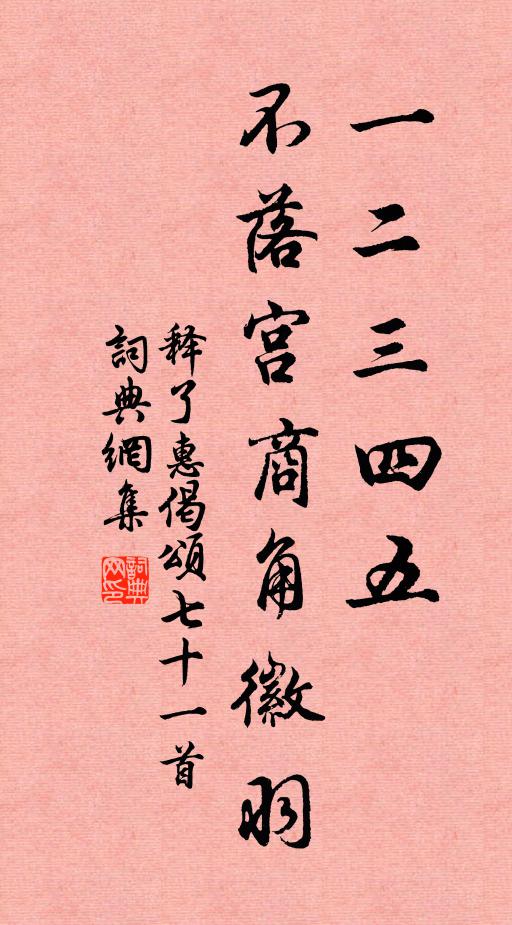 一二三四五
不落宫商角徽羽
释了惠偈頌七十一首
詞典網集
詞典網印